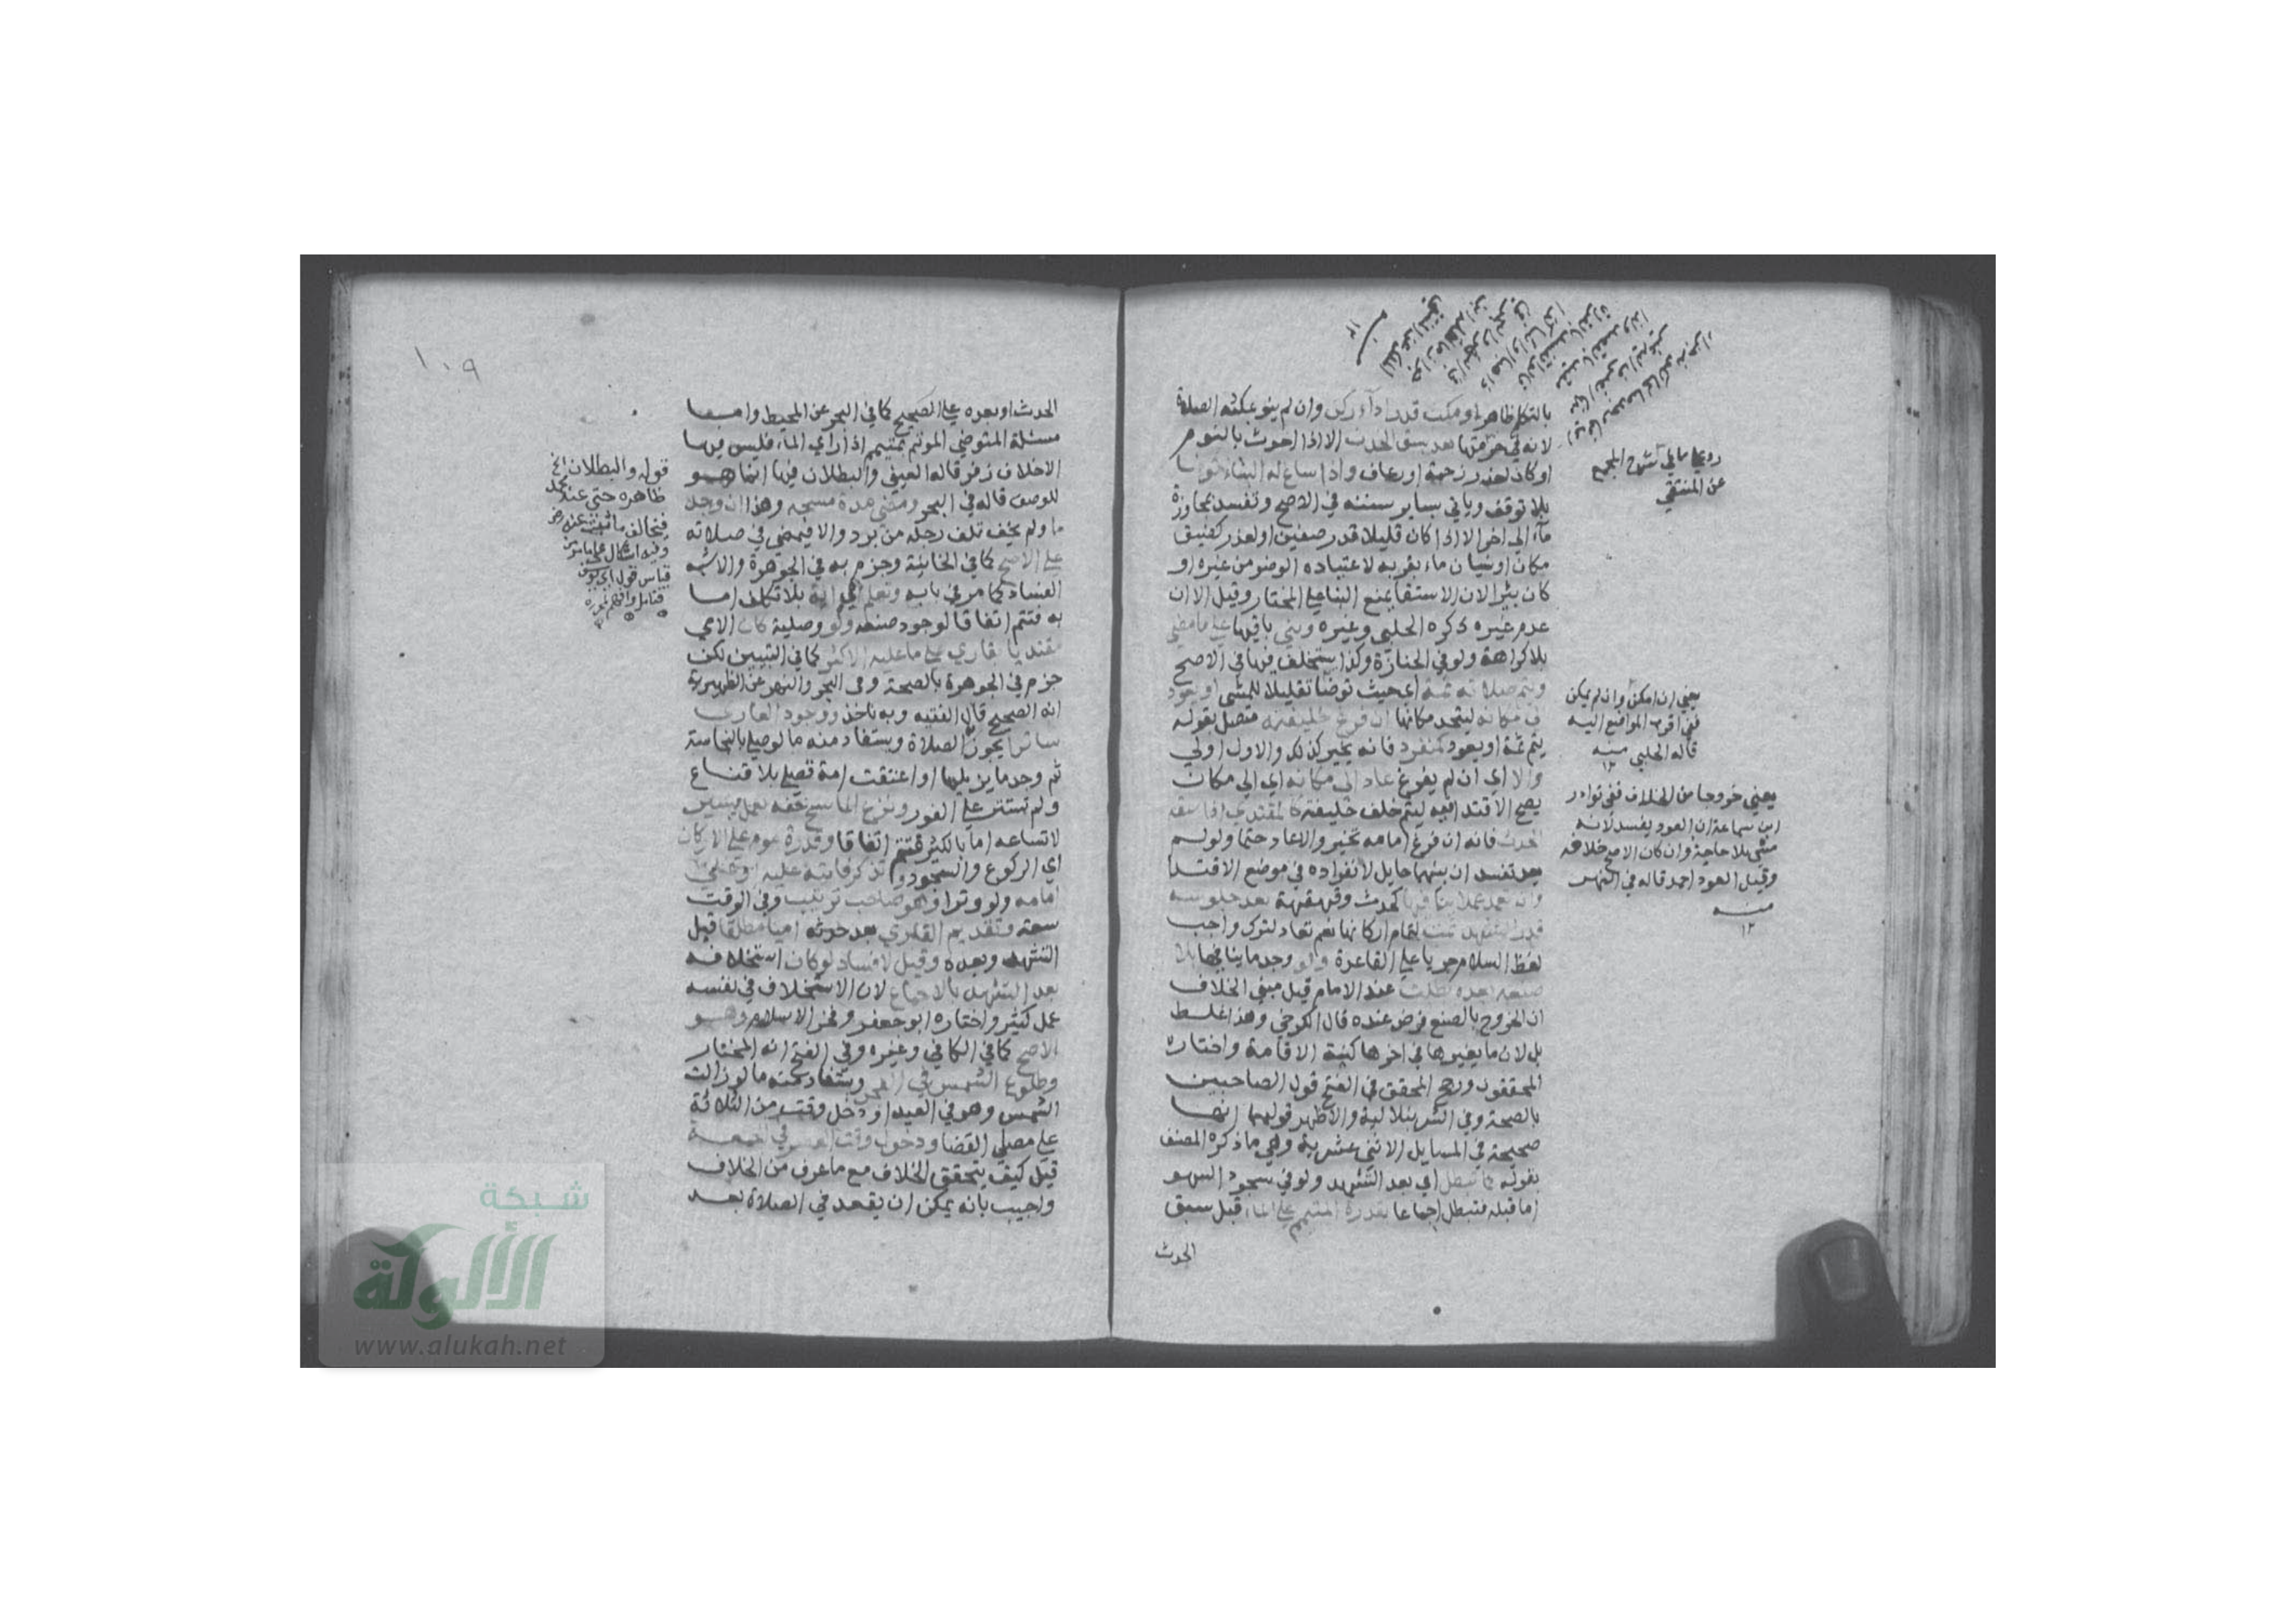 بالتكلم ظاهرا او مكث قدر اداء ركن وان لم ينو بمكثه الصلاة
لانه في حرمتها بعد سبق الحدث الا اذا احدث بالنوم
او كان لعذر زحمة او رعاف واذا ساغ له البناء توضأ
بلا توقف وياتي بساير سننه في الاصح وتفسد بمجاوزة
ماء الى اخر الا اذا كان قليلا قدر صفين او لعذر كضيق
مكان او نسيان ماء بقربه لاعتياده الوضو من غيره او
كان بئرا لان الاستقا يمنع البنا على المختار وقيل الا ان
عدم غيره ذكره الحلبي وغيره وبنى باقيها على ما مضى
بلا كراهة ولو في الجنازة وكذا يستخلف فيها في الاصح
ويتم صلاته ثمة اي حيث توضأ تقليلا للمشي او يعود
الى مكانه ليتحد مكانها ان فرغ خليفته متصل بقوله
يتم ثمة او يعود كمنفرد فانه يخير كذلك والاول اولى
والا اي ان لم يفرغ عاد الى مكانه اي الى مكان
يصح الاقتدا فيه ليتم خلف خليفته كالمقتدي اذا سبقه
الحدث فانه ان فرغ امامه تخير والا عاد حتما ولو لم
يعد تفسد ان بينهما حايل لانفراده في موضع الاقتدا
وان تعمد عملا ينافيها كحدث وقهقهة بعد جلوسه
قدر التشهد تمت لتمام اركانها نعم تعاد لترك واجب
لفظ السلام جريا على القاعدة ولو وجد ما ينافيها بلا
صنعه بعده بطلت عند الامام قيل مبنى الخلاف
ان الخروج بالصنع فرض عنده قال الكرخي وهذا غلط
بل لان ما يغيرها في اخرها كنية الاقامة واختاره
المحققون ورجح المحقق في الفتح قول الصاحبين
بالصحة وفي الشرنبلالية والاظهر قولهما انها
صحيحة في المسايل الاثني عشرية وهي ما ذكره المصنف
بقوله كما تبطل اي بعد التشهد ولو في سجود السهو
اما قبله فتبطل اجماعا بقدرة المتيمم على الماء قبل سبق
الحدث
عن المنتقى
يعني ان امكن وان لم يمكن
ففي اقرب المواضع اليه
قاله الحلبي منه
١٢
يعني خروجا من الخلاف ففي نوادر
ابن سماعة ان العود يفسد لانه
مشي بلا حاجة وان كان الاصح خلافه
وقيل العود احمد قاله في النهر
منه
١٢
١٠٩
الحدث او بعده على الصحيح كما في البحر عن المحيط واما
مسئلة المتوضي المؤتم بمتيمم اذا راي الماء فليس فيها
الا خلاف زفر قاله العيني والبطلان فيها انما هو
للوصف قاله في البحر ومضي مدة مسحه وهذا ان وجد
ما ولم يخف تلف رجله من برد والا فيمضي في صلاته
على الاصح كما في الخانية وجزم به في الجوهرة والاشبه
الفساد كما مر في بابه وتعلم امي اية بلا تكلف اما
به فتتم اتفاقا لوجود صنعه ولو وصلية كان الامي
مقتديا بقاري على ما عليه الاكثر كما في التبيين لكن
جزم في الجوهرة بالصحة وفي البحر والنهر عن الظهيرية
انه الصحيح قال الفقيه وبه ناخذ ووجود العاري
ساترا يجوز الصلاة ويستفاد منه ما لو صلى بالنجاسة
ثم وجد ما يزيلها او اعتقت امة تصلي بلا قناع
ولم تستتر على الفور ونزع الماسح خفه بعمل يسير
لاتساعه اما بالكثير فتتم اتفاقا وقدرة موم على الاركان
اي الركوع والسجود وتذكر فايتة عليه او على
امامه ولو وترا وهو صاحب ترتيب وفي الوقت
سعة وتقديم القاري بعد حدثه اميا مطلقا قبل
التشهد وبعده وقيل لا فساد لو كان استخلافه
بعد التشهد بالاجماع لان الاستخلاف في نفسه
عمل كثير واختاره ابو جعفر وفخر الاسلام وهو
الاصح كما في الكافي وغيره وفي الفتح انه المختار
وطلوع الشمس في الفجر ويستفاد منه ما لو زالت
الشمس وهو في العيد او دخل وقت من الثلاثة
على مصلي القضا ودخول وقت العصر في الجمعة
قيل كيف يتحقق الخلاف مع ما عرف من الخلاف
واجيب بانه يمكن ان يقعد في الصلاة بعد
قوله والبطلان الخ
ظاهره حتى عند محمد
شبكة
الألوكة
www.alukah.net